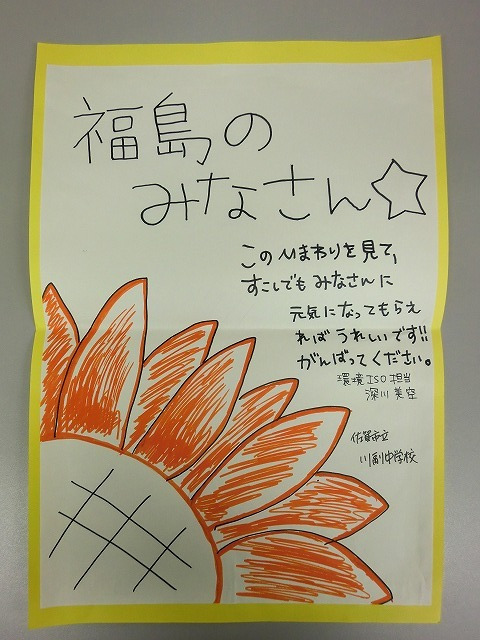 福島の
みなさん☆
このひまわりを見て、
すこしでもみなさんに
元気になってもらえ
ればうれしいです!!
がんばってください。
環境ISO担当
深川 美空
佐賀市立
川副中学校